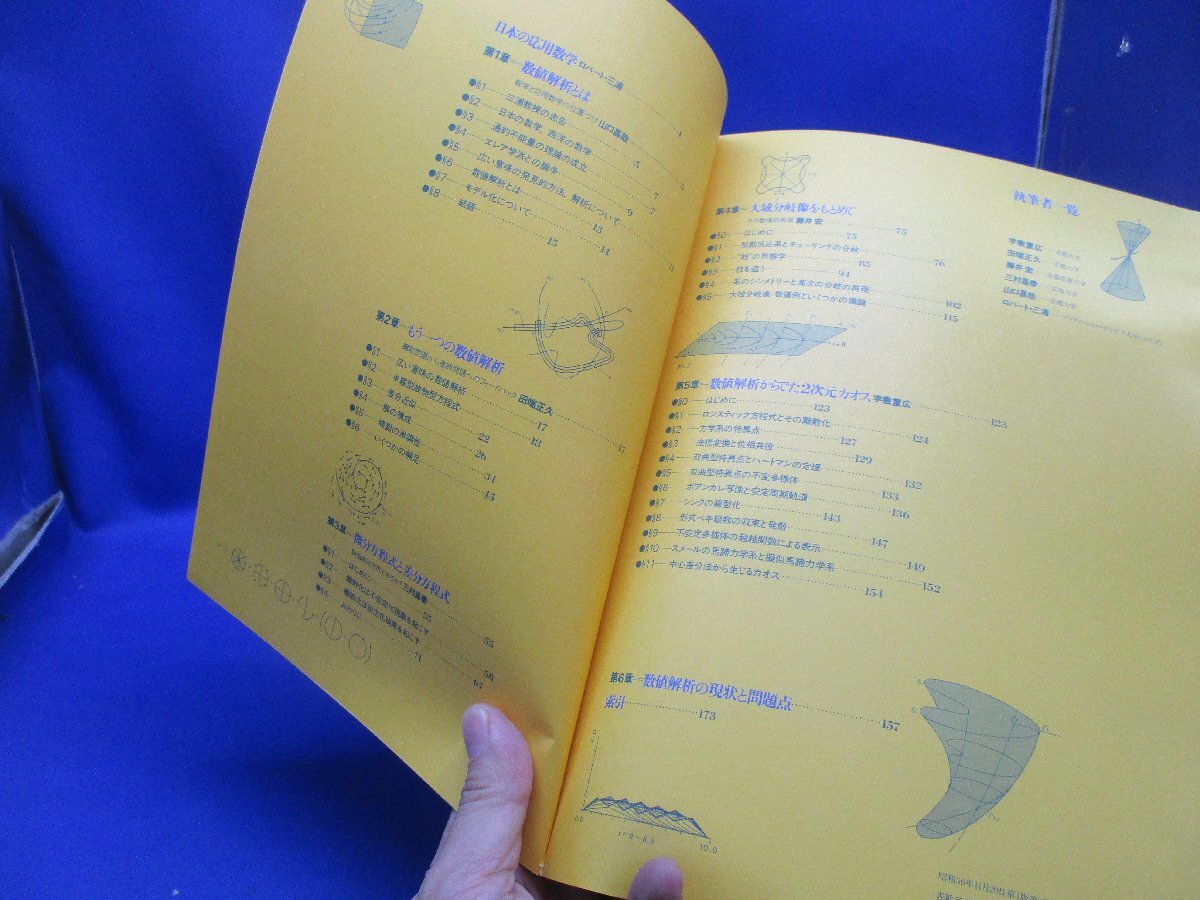 日本の応用数学 ロバート・三浦
第1章—数値解析とは
数学と応用数学の位置づけ 山口昌哉
●§1—三浦教授の忠告 5
●§2—日本の数学，西洋の数学 7
●§3—通約不能量の理論の成立 7
●§4—エレア学派との論争 9
●§5—広い意味の発見的方法，解析について
●§6—数値解析とは 13
●§7—モデル化について 14
●§8—結語 15
第2章—もう一つの数値解析
田端正久 17
●§1—広い意味の数値解析 17
●§2—半線型放物型方程式 18
●§3—差分近似 22
●§4—解の構成 26
●§5 34
●§6—いくつかの補足 45
第3章—微分方程式と差分方程式
三村昌泰 55
●§1—はじめに 55
●§2—離散化は不安定な現象を起こす 56
●§3 67
●§4—おわりに 71
第4章—大域分岐像をもとめて
その数値的再現 藤井宏 75
●§0—はじめに 75
●§1—拡散反応系とチューリングの分岐 76
●§2—"枝"の形態学 85
●§3—枝を追う 94
●§4—系のシンメトリーと高次の分岐の再現 102
●§5—大域分岐像/数値例といくつかの議論 115
第5章—数値解析からでた2次元カオス 宇敷重広 123
●§0—はじめに 123
●§1—ロジスティック方程式とその離散化 124
●§2—力学系の特異点 127
●§3—座標変換と位相共役 129
●§4—双曲型特異点とハートマンの定理 132
●§5—双曲型特異点の不変多様体 133
●§6—ポアンカレ写像と安定周期軌道 136
●§7—シンクの線型化 143
●§8—形式ベキ級数の収束と発散 147
●§9—不安定多様体の超越関数による表示 149
●§10—スメールの馬蹄力学系と擬似馬蹄力学系 152
●§11—中心差分法から生じるカオス 154
第6章—数値解析の現状と問題点 157
索引 173
執筆者一覧
宇敷重広—京都大学
田端正久—京都大学
藤井宏—京都産業大学
三村昌泰—広島大学
山口昌哉—京都大学
ロバート・三浦
昭和56年11月20日 第1版
0.0
10.0